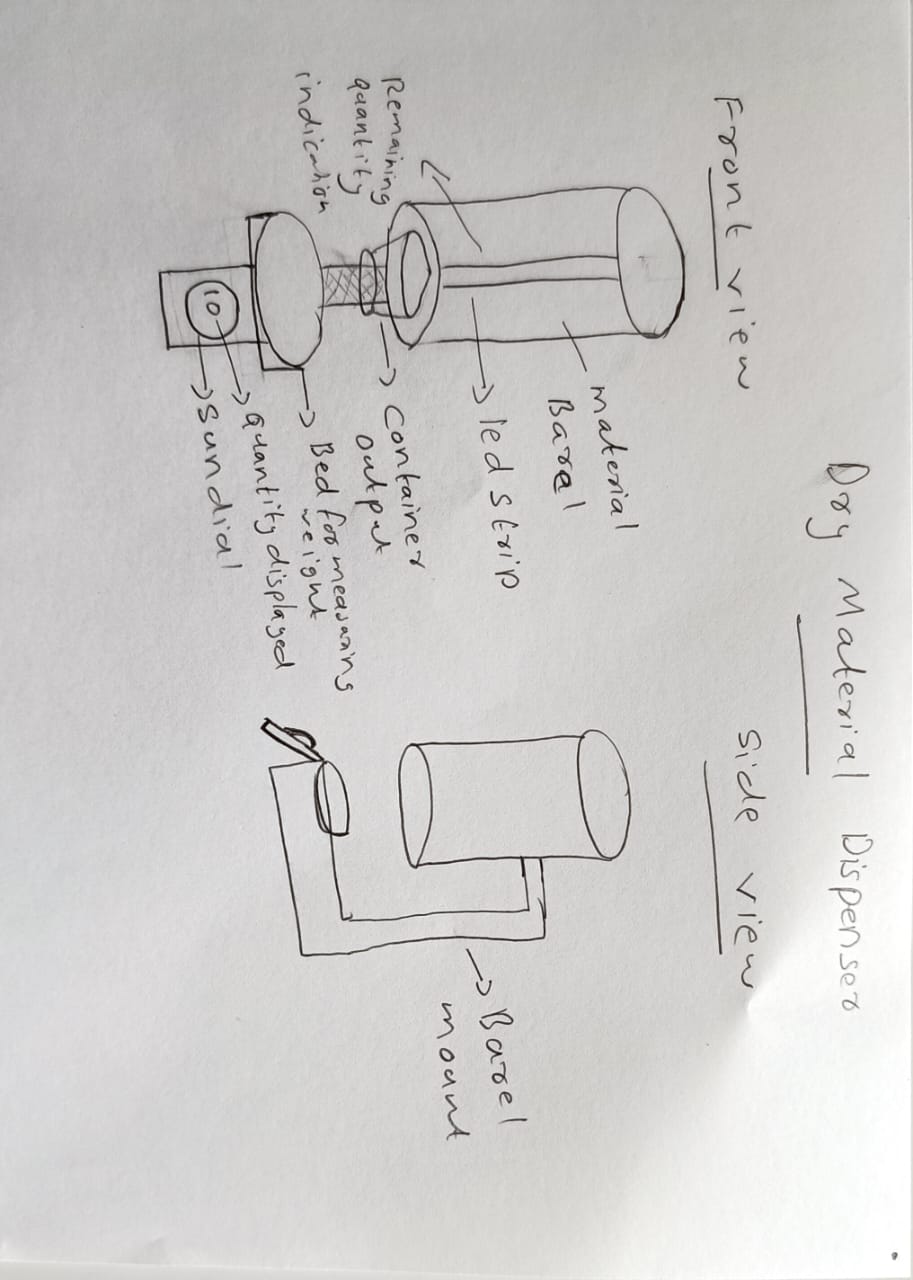 Dry Material Dispenser
Front view
side view
material
Barel
led strip
Remaining
quantity
indication
Container
output
Bed for measuring
weight
quantity displayed
sundial
10
Barel
mount